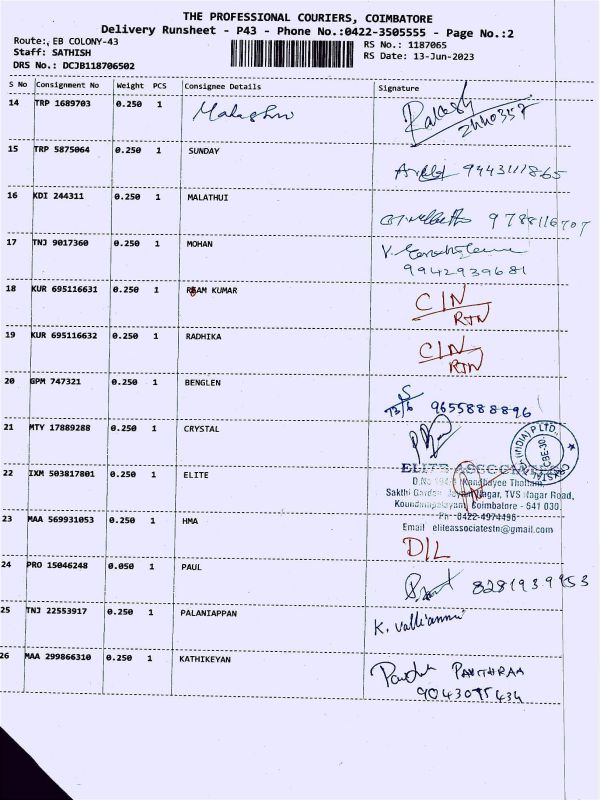 THE PROFESSIONAL COURIERS, COIMBATORE
Delivery Runsheet - P43 - Phone No.:0422-3505555 - Page No.:2
Route: EB COLONY-43
RS No.: 1187065
Staff: SATHISH
RS Date: 13-Jun-2023
DRS No.: DCJB118706502
S No Consignment No Weight PCS Consignee Details Signature
14 TRP 1689703 0.250 1 Rakesh
15 TRP 5875064 0.250 1 SUNDAY 9443111865
16 KDI 244311 0.250 1 MALATHUI 9788116707
17 TNJ 9017360 0.250 1 MOHAN
9942939681
18 KUR 695116631 0.250 1 RAM KUMAR CIN
RTN
19 KUR 695116632 0.250 1 RADHIKA CIN
RTN
20 GPM 747321 0.250 1 BENGLEN 13/6 9655888896
21 MTY 17889288 0.250 1 CRYSTAL
22 IXM 503817801 0.250 1 ELITE
ELITE ASSOCIATES
Kandhayee Thottam,
Sakthi Garden Nagar, TVS Nagar Road,
Koundampalayam, Coimbatore - 641 030.
Ph: 0422-4974496
Email eliteassociatestn@gmail.com
23 MAA 569931053 0.250 1 HMA D/L
24 PRO 15046248 0.050 1 PAUL 8281939953
25 TNJ 22553917 0.250 1 PALANIAPPAN K. valliammi
26 MAA 299866310 0.250 1 KATHIKEYAN PAVITHRAA